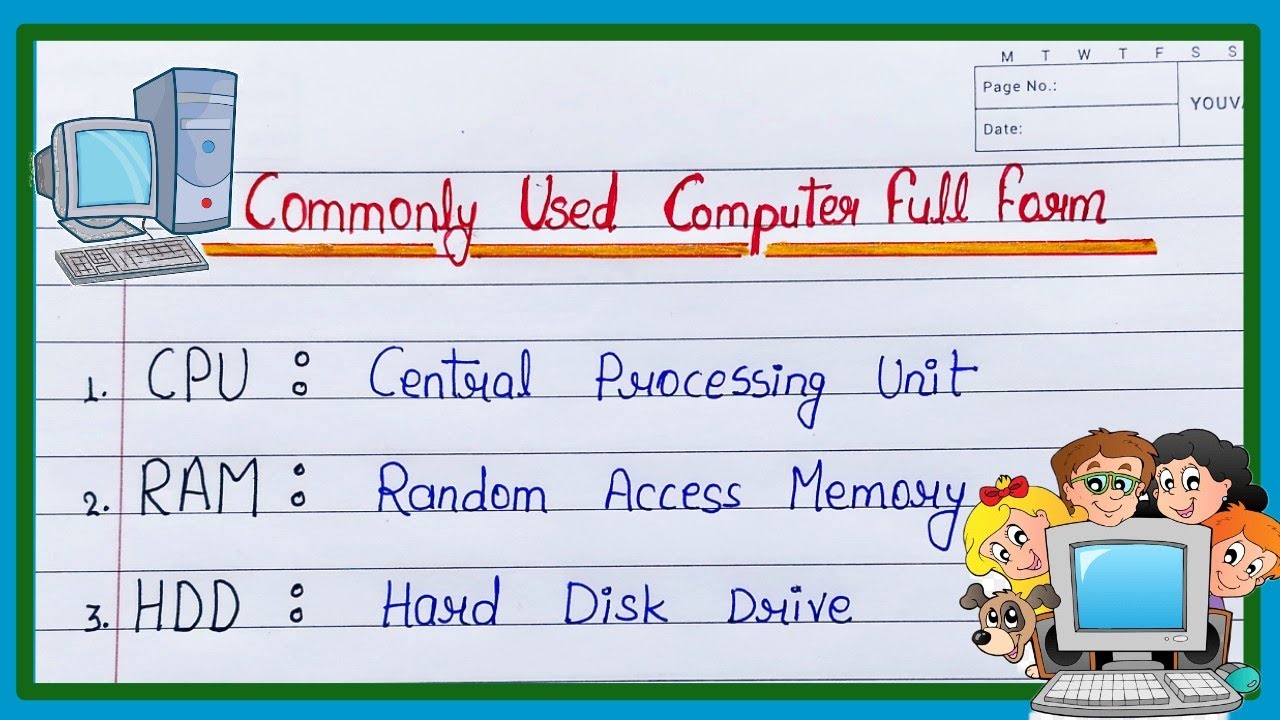 M T W T F S S
Page No.:
YOUVA
Date:
Commonly Used Computer Full Form
1. CPU : Central Processing Unit
2. RAM : Random Access Memory
3. HDD : Hard Disk Drive